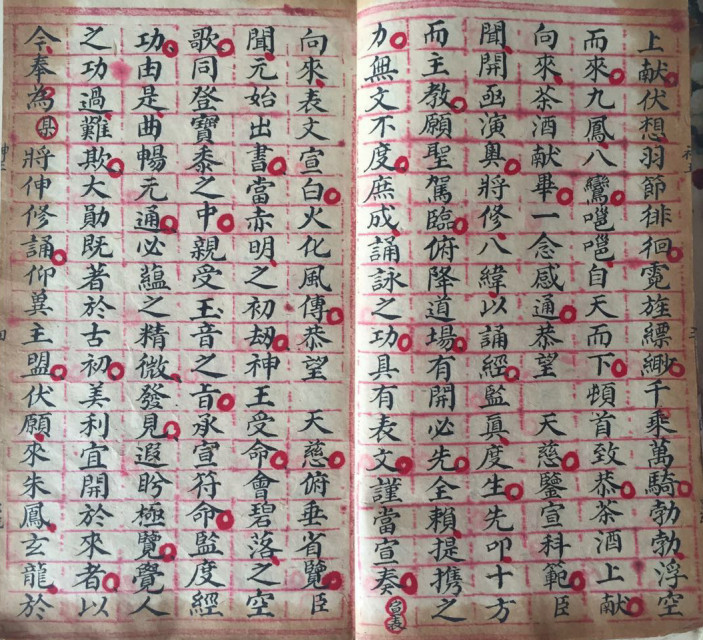 上献伏想羽節徘徊霓旌縹緲千乘萬騎勃勃浮空
而來九鳳八鸞嗈嗈自天而下頓首致恭茶酒上献
向來茶酒献畢一念感通恭望天慈鑒宣科範臣
聞開函演奥將修八緯以誦經監真度生先叩十方
而主教願聖駕臨俯降道場有開必先全賴提携之
力無文不度庶成誦詠之功具有表文謹當宣奏
宣表
向來表文宣白火化風傳恭望天慈俯垂省覽臣
聞元始出書當赤明之初劫神王受命會碧落之空
歌同登寶黍之中親受玉音之旨承宣符命監度經
功由是曲暢元通必蘊之精微發見遐眄極覽覺人
之功過難欺大勛既著於古初美利宜開於來者以
令奉為具將伸修誦仰冀主盟伏願來朱鳳玄龍於